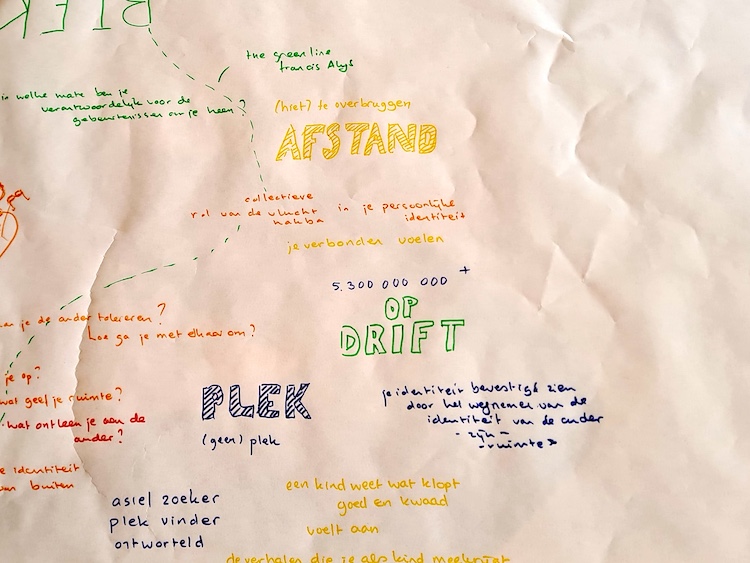 the green line
francis Alys
in welke mate ben je
verantwoordelijk voor de
gebeurtenissen om je heen?
(niet) te overbruggen
AFSTAND
collectieve
rol van de vlucht in je persoonlijke
nakba identiteit
je verbonden voelen
5.300 000 000 +
OP
DRIFT
je de ander tolereren?
hoe ga je met elkaar om?
je op?
wat geef je ruimte?
wat ontleen je aan de
ander?
PLEK
(geen) plek
je identiteit bevestigd zien
door het wegnemen van de
identiteit van de ander
- zijn -
- ruimte >
e identiteit
van buiten
asiel zoeker
plek vinder
ontworteld
een kind weet wat klopt
goed en kwaad
voelt aan
de verhalen die je als kind meekrijgt